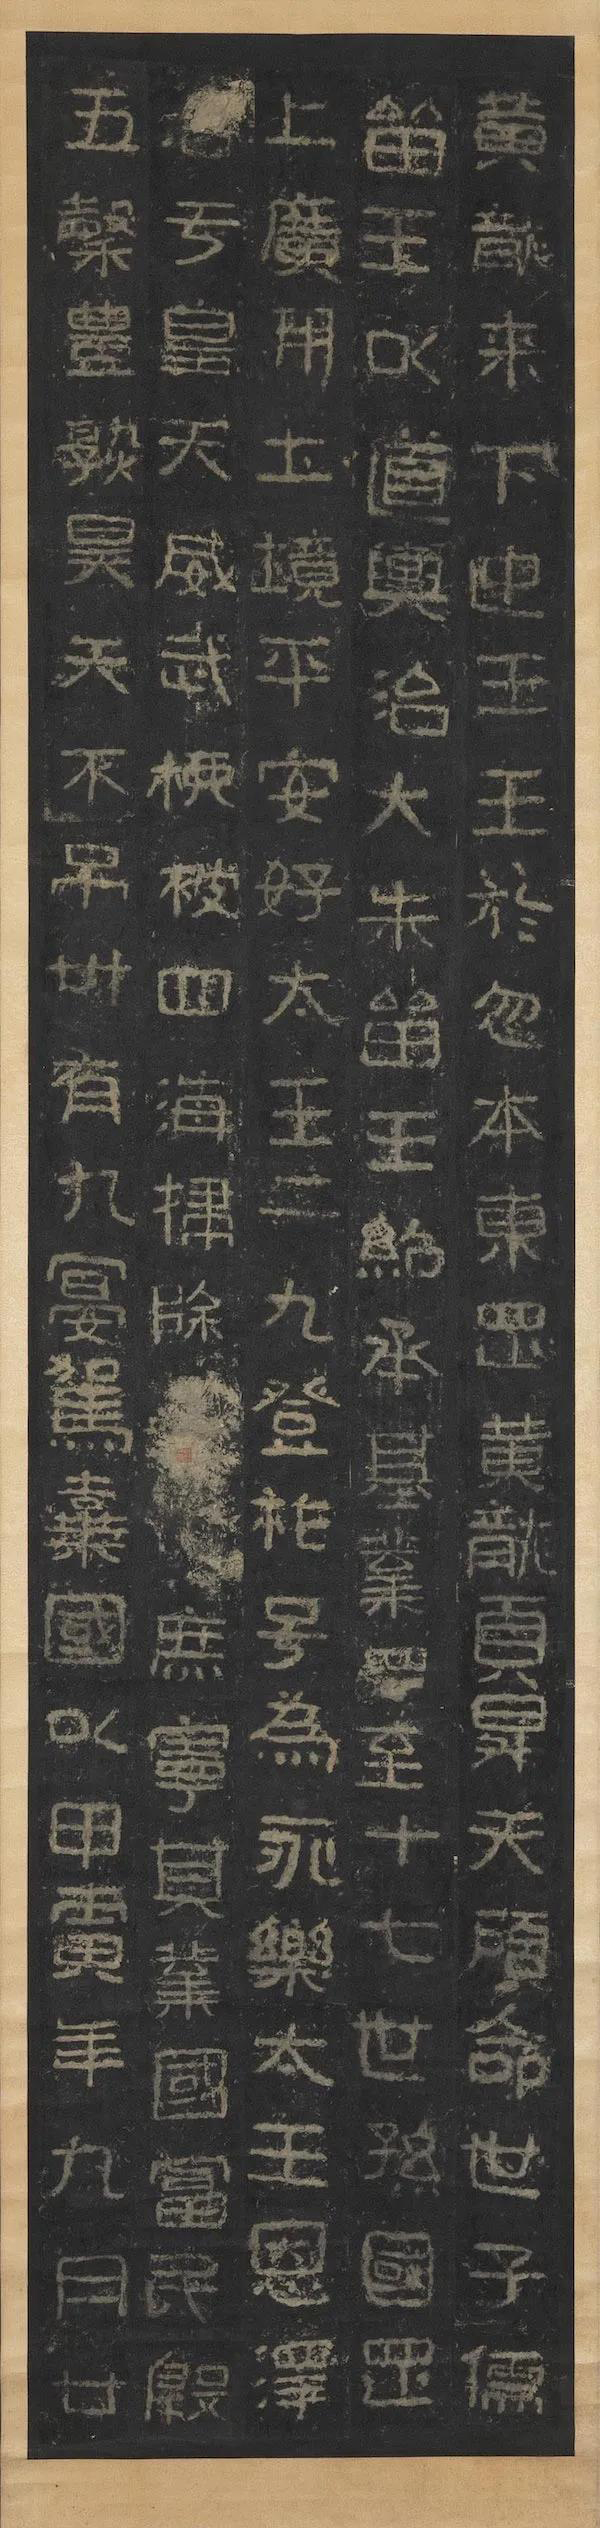 黃龍来下迎王王於忽本東罡黃龍頁昇天顧命世子儒
留王以道興治大朱留王紹承基業至十七世孫國罡
上廣開土境平安好太王二九登祚号為永樂太王恩澤
于皇天威武被四海掃除庶寧其業國富民殷
五穀豊熟昊天不弔卅有九宴駕棄國以甲寅年九月廿